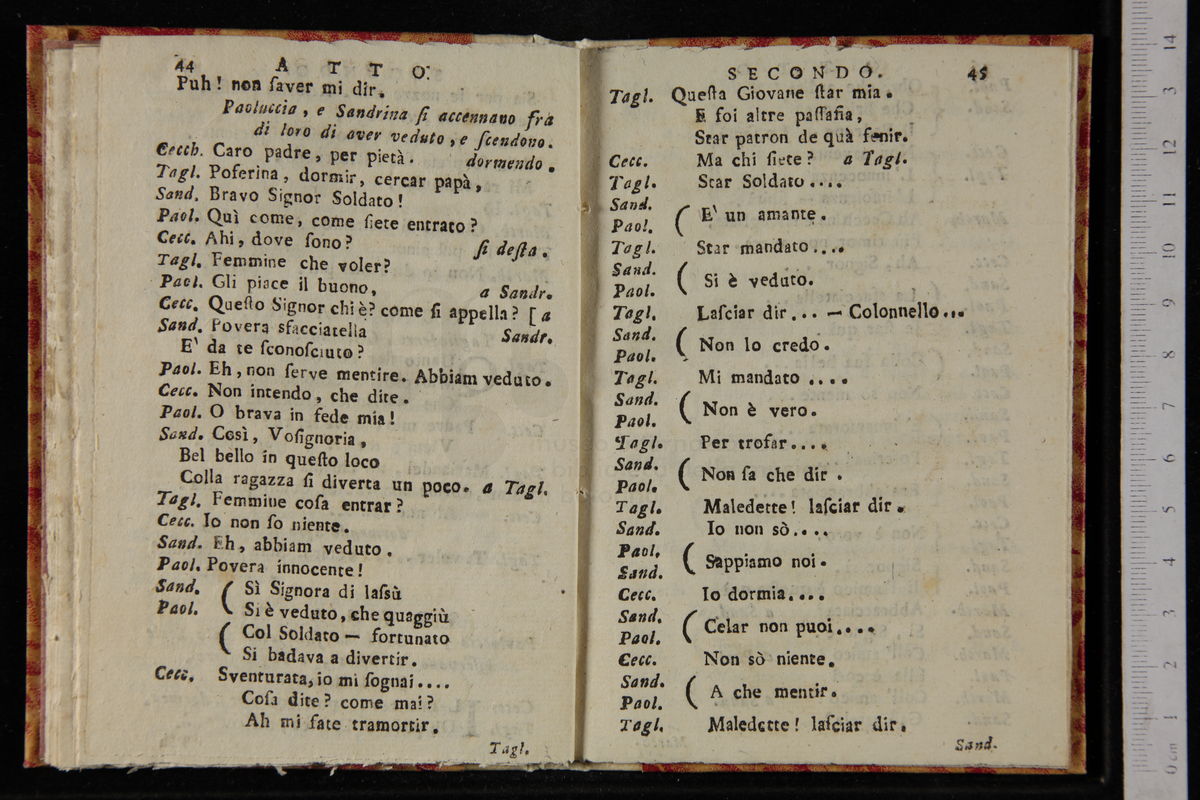 44 ATTO.
Puh! non ſaver mi dir.
Paoluccia, e Sandrina ſi accennano frà
di loro di aver veduto, e ſcendono.
Cecch. Caro padre, per pietà. dormendo.
Tagl. Poferina, dormir, cercar papà,
Sand. Bravo Signor Soldato!
Paol. Quì come, come ſiete entrato?
Cecc. Ahi, dove ſono? ſi deſta.
Tagl. Femmine che voler?
Paol. Gli piace il buono, a Sandr.
Cecc. Queſto Signor chi è? come ſi appella? [a
Sand. Povera sfacciatella Sandr.
E' da te ſconoſciuto?
Paol. Eh, non ſerve mentire. Abbiam veduto.
Cecc. Non intendo, che dite.
Paol. O brava in fede mia!
Sand. Così, Voſignoria,
Bel bello in queſto loco
Colla ragazza ſi diverta un poco. a Tagl.
Tagl. Femmine coſa entrar?
Cecc. Io non ſo niente.
Sand. Eh, abbiam veduto.
Paol. Povera innocente!
Sand. ( Sì Signora di laſsù
Paol. Si è veduto, che quaggiù
( Col Soldato — fortunato
Si badava a divertir.
Cecc. Sventurata, io mi ſognai....
Coſa dite? come mai?
Ah mi fate tramortir.
Tagl.
SECONDO. 45
Tagl. Queſta Giovane ſtar mia.
E ſoi altre paſſaſia,
Star patron de quà fenir.
Cecc. Ma chi ſiete? a Tagl.
Tagl. Star Soldato....
Sand.
Paol. ( E' un amante.
Tagl. Star mandato....
Sand.
Paol. ( Si è veduto.
Tagl. Laſciar dir... — Colonnello...
Sand.
Paol. ( Non lo credo.
Tagl. Mi mandato ....
Sand.
Paol. ( Non è vero.
Tagl. Per trofar....
Sand.
Paol. ( Non ſa che dir.
Tagl. Maledette! laſciar dir.
Sand. Io non sò....
Paol.
Sand. ( Sappiamo noi.
Cecc. Io dormia....
Sand.
Paol. ( Celar non puoi....
Cecc. Non sò niente.
Sand.
Paol. ( A che mentir.
Tagl. Maledette! laſciar dir.
Sand.
14
12
11
10
9
8
7
6
5
4
3
2
1
0 cm